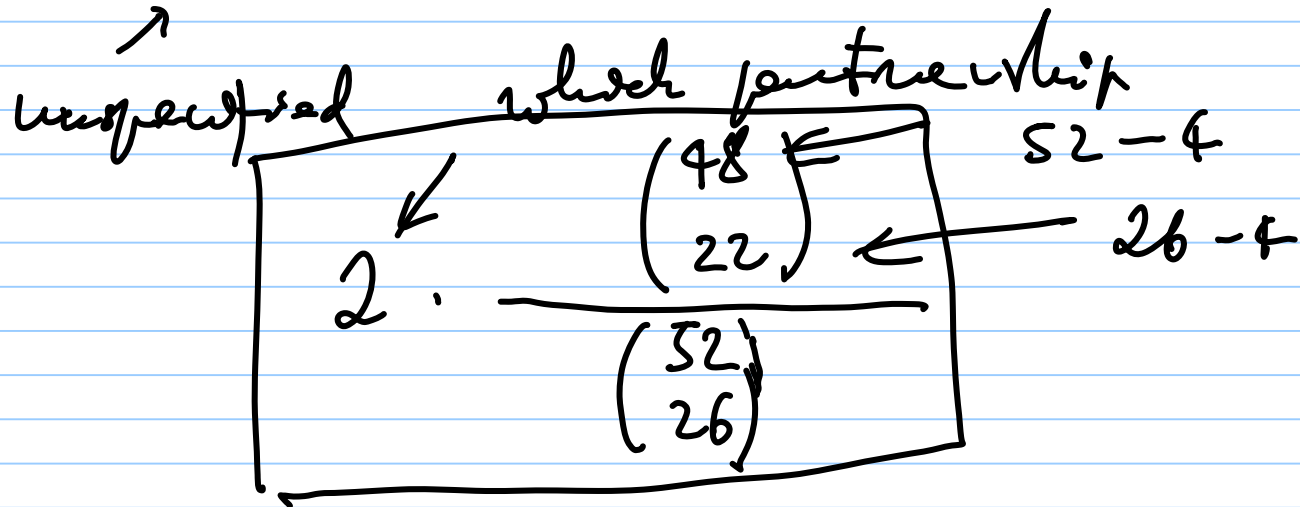 unspecified which partnership
(48 22) 52 - 4
26 - 4
2 ·
(52 26)